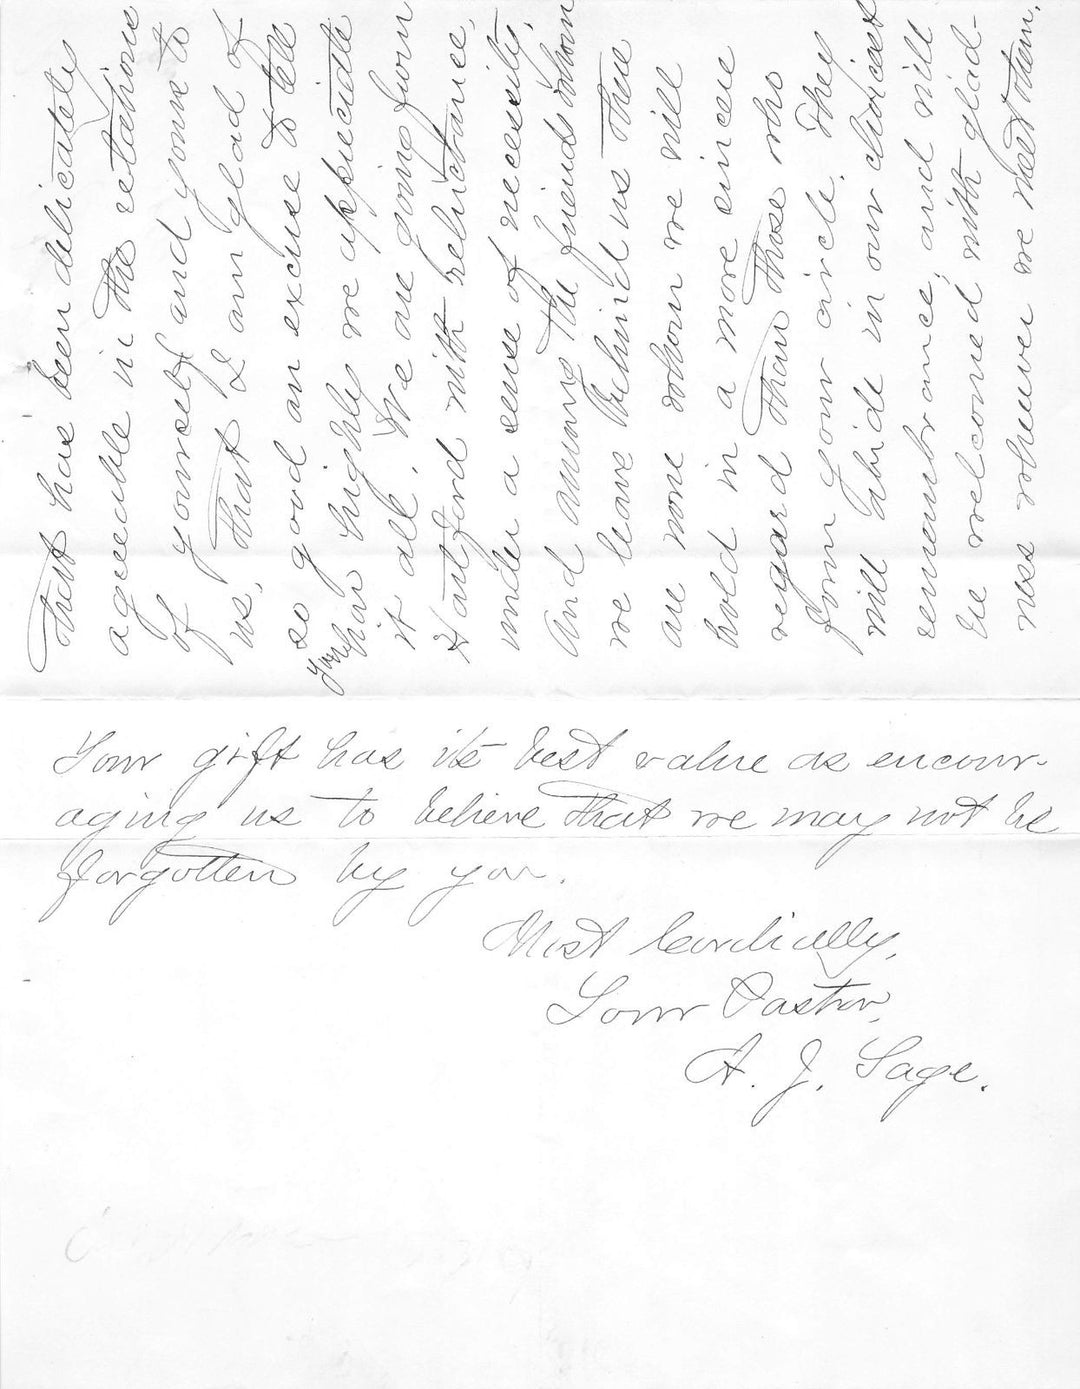 that has been delicately
agreeable in the relations
of yourself and yours to
us, that I am glad of
so good an excuse to tell
you
how highly we appreciate
it all. We are going from
Hartford with reluctance,
under a sense of necessity.
And among the friends whom
we leave behind us there
are none whom we will
hold in a more sincere
regard than those who
form your circle. They
will abide in our choicest
remembrance, and will
be welcomed with glad-
ness whenever we meet them.
Your gift has its best value as encour-
aging us to believe that we may not be
forgotten by you.
Most Cordially,
Your Pastor,
A. J. Sage.